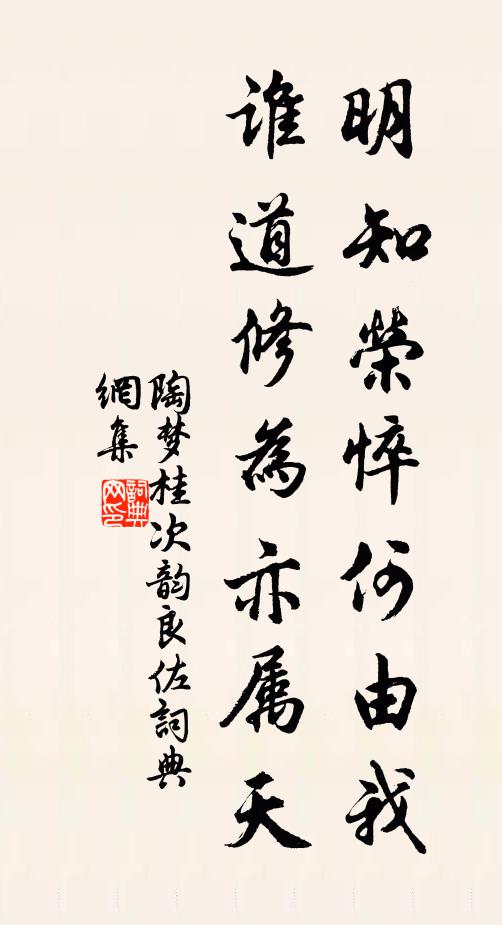 明知榮悴何由我
誰道修為亦属天
陶梦桂次韵良佐詞典
網集
詞典
网印